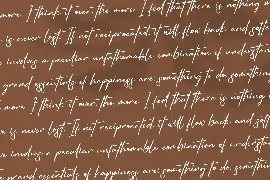 more. I think it over. the more I feel that there is nothing
is never lost. If not reciprocated it will flow back. and soft
loveing a peculiar unfathomable combination of understan
grand essentials of happiness are. something to do. somethin
more. I think it over. the more I feel that there is nothing
is never lost. If not reciprocated it will flow back. and soft
loveing a peculiar unfathomable combination of understan
grand essentials of happiness are. something to do. somethin